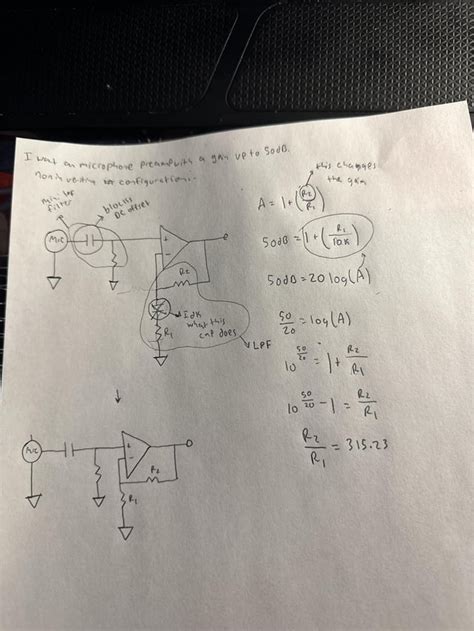 I want an microphone preamp with a gain up to 50dB.
noninverting configuration.
filter
blocks
DC offset
Mic
+
-
R2
R1
Idk
what this
cap does
LPF
this changes
the gain
A = 1 + (R2/R1)
50dB = 1 + (R2/10K)
50dB = 20 log(A)
50/20 = log(A)
10^(50/20) = 1 + R2/R1
10^(50/20) - 1 = R2/R1
R2/R1 = 315.23
Mic
+
-
R2